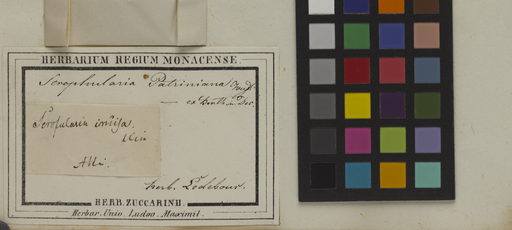 HERBARIUM REGIUM MONACENSE.
Scrophularia Patriniana
ex Benth. in Dec.
Scrofularia incisa.
Alt.
herb. Ledebour.
HERB. ZUCCARINII.
Herbar. Univ. Ludov. Maximil.